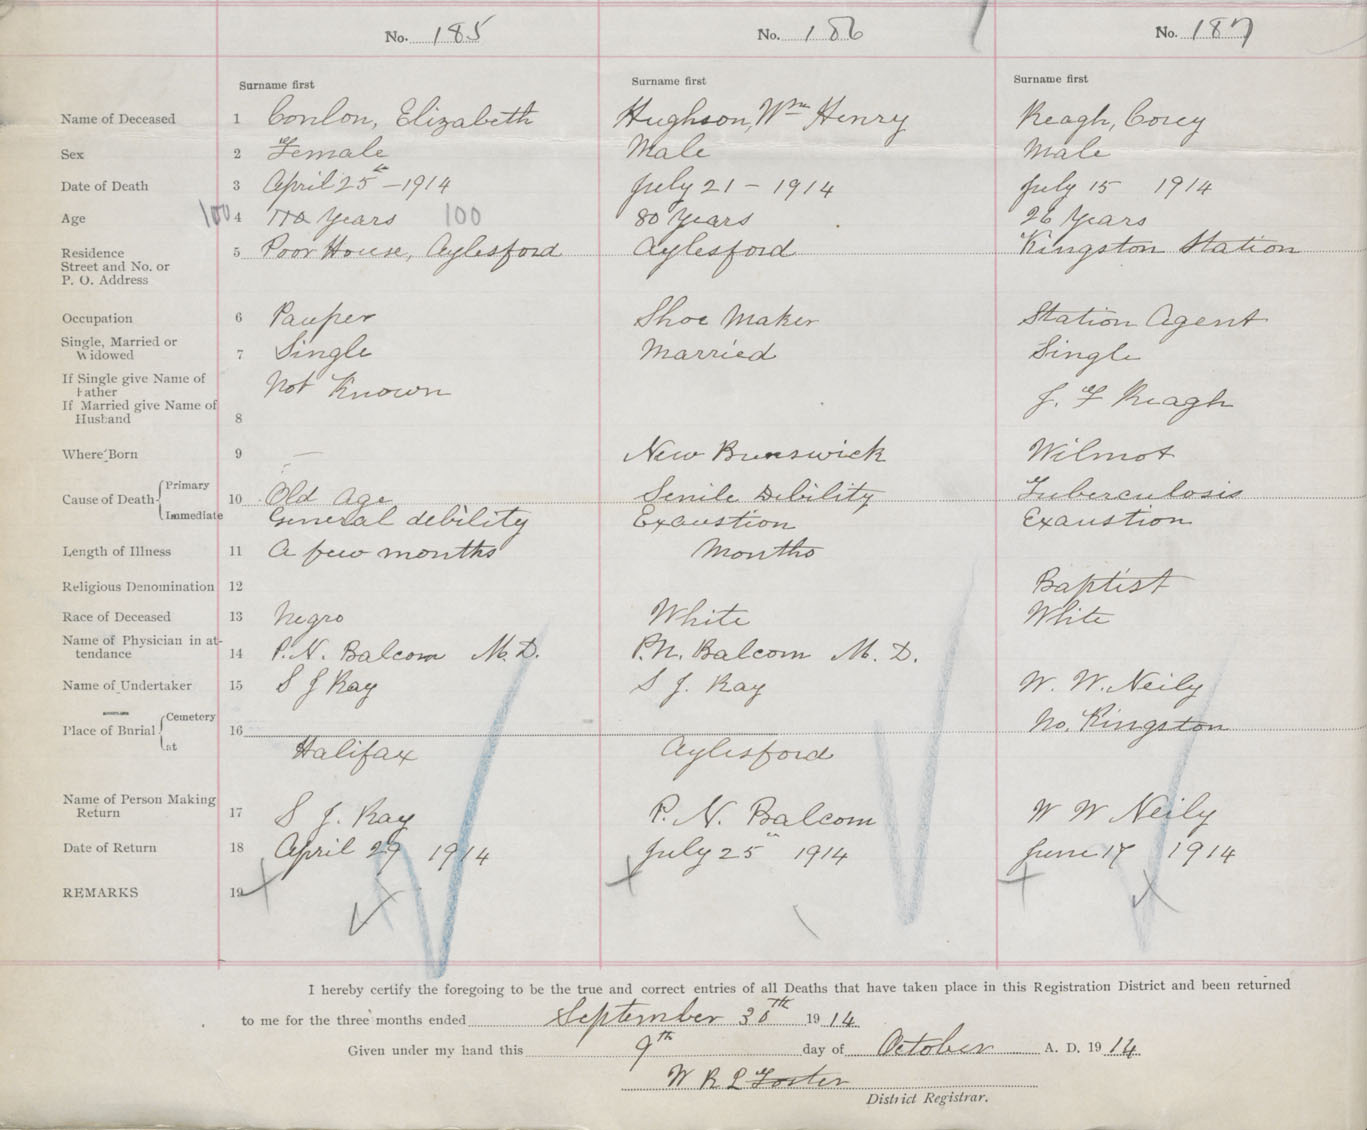 No. 185 No. 186 No. 187
Surname first Surname first Surname first
Name of Deceased 1 Conlon, Elizabeth Hughson, Wm Henry Reagh, Corey
Sex 2 Female Male Male
Date of Death 3 April 25th - 1914 July 21 - 1914 July 15 1914
Age 100 4 Years 100 80 Years 26 Years
Residence 5 Poor House, Aylesford Aylesford Kingston Station
Street and No. or
P. O. Address
Occupation 6 Pauper Shoe Maker Station Agent
Single, Married or
Widowed 7 Single Married Single
If Single give Name of
Father Not Known
If Married give Name of J. F Reagh
Husband 8
Where Born 9 — New Brunswick Wilmot
Cause of Death Primary 10 Old Age Senile Debility Tuberculosis
Immediate General debility Exaustion Exaustion
Length of Illness 11 A few months Months
Religious Denomination 12 Baptist
Race of Deceased 13 Negro White White
Name of Physician in at-
tendance 14 P. N. Balcom M. D. P. N. Balcom M. D.
Name of Undertaker 15 S J Ray S J. Ray W. W. Neily
Place of Burial Cemetery 16 No. Kingston
at Halifax Aylesford
Name of Person Making
Return 17 S J. Ray P. N. Balcom W W Neily
Date of Return 18 April 29 1914 July 25" 1914 June 17 1914
REMARKS 19
I hereby certify the foregoing to be the true and correct entries of all Deaths that have taken place in this Registration District and been returned
to me for the three months ended September 30th 1914
Given under my hand this 9th day of October A. D. 1914
W R L Foster
District Registrar.